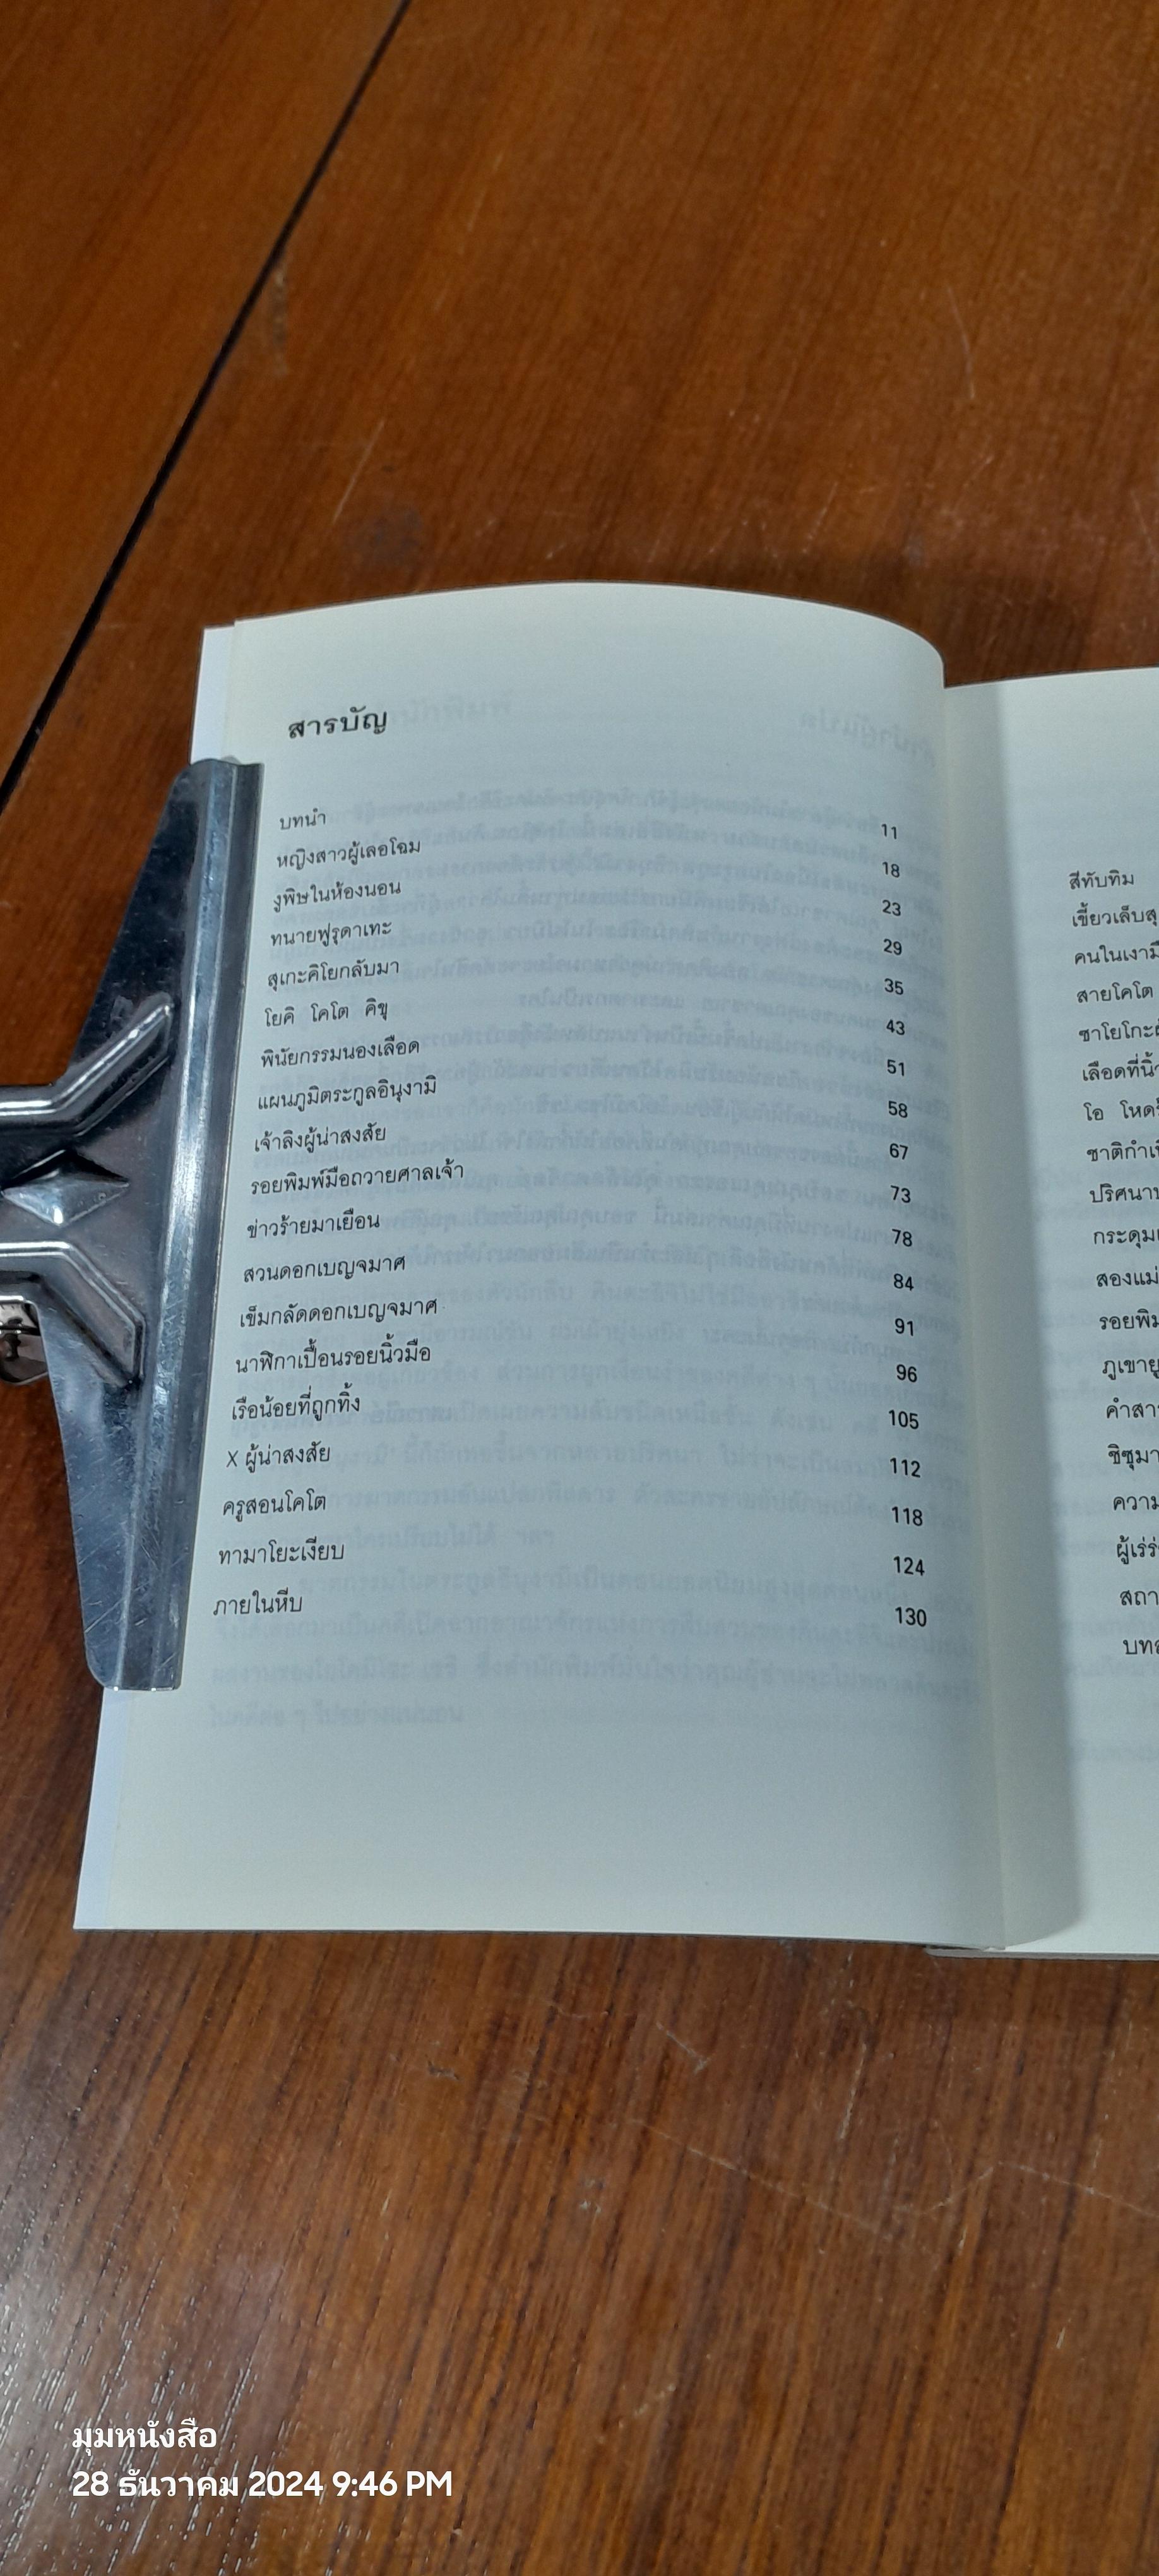 สารบัญ
บทนำ 11
หญิงสาวผู้เลอโฉม 18
งูพิษในห้องนอน 23
ทนายฟุรุดาเทะ 29
สุเกะคิโยกลับมา 35
โยคิ โคโต คิขุ 43
พินัยกรรมนองเลือด 51
แผนภูมิตระกูลอินุงามิ 58
เจ้าลิงผู้น่าสงสัย 67
รอยพิมพ์มือถวายศาลเจ้า 73
ข่าวร้ายมาเยือน 78
สวนดอกเบญจมาศ 84
เข็มกลัดดอกเบญจมาศ 91
นาฬิกาเปื้อนรอยนิ้วมือ 96
เรือน้อยที่ถูกทิ้ง 105
X ผู้น่าสงสัย 112
ครูสอนโคโต 118
ทามาโยะเงียบ 124
ภายในหีบ 130
สีทับทิม
เขี้ยวเล็บ
คนในเงา
สายโคโต
ซาโยโกะ
เลือดที่
โอ
ชาติกำเ
ปริศนา
กระดุม
สองแม่
รอยพิม
ภูเขา
คำสา
ชิซุมา
ความ
ผู้เร่ร่
สถา
บท
มุมหนังสือ
28 ธันวาคม 2024 9:46 PM